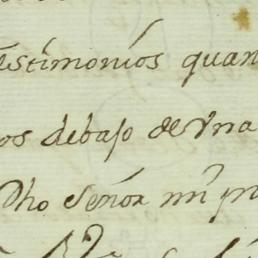 testimonios quan
os debajo de vna
Dho señor mi p